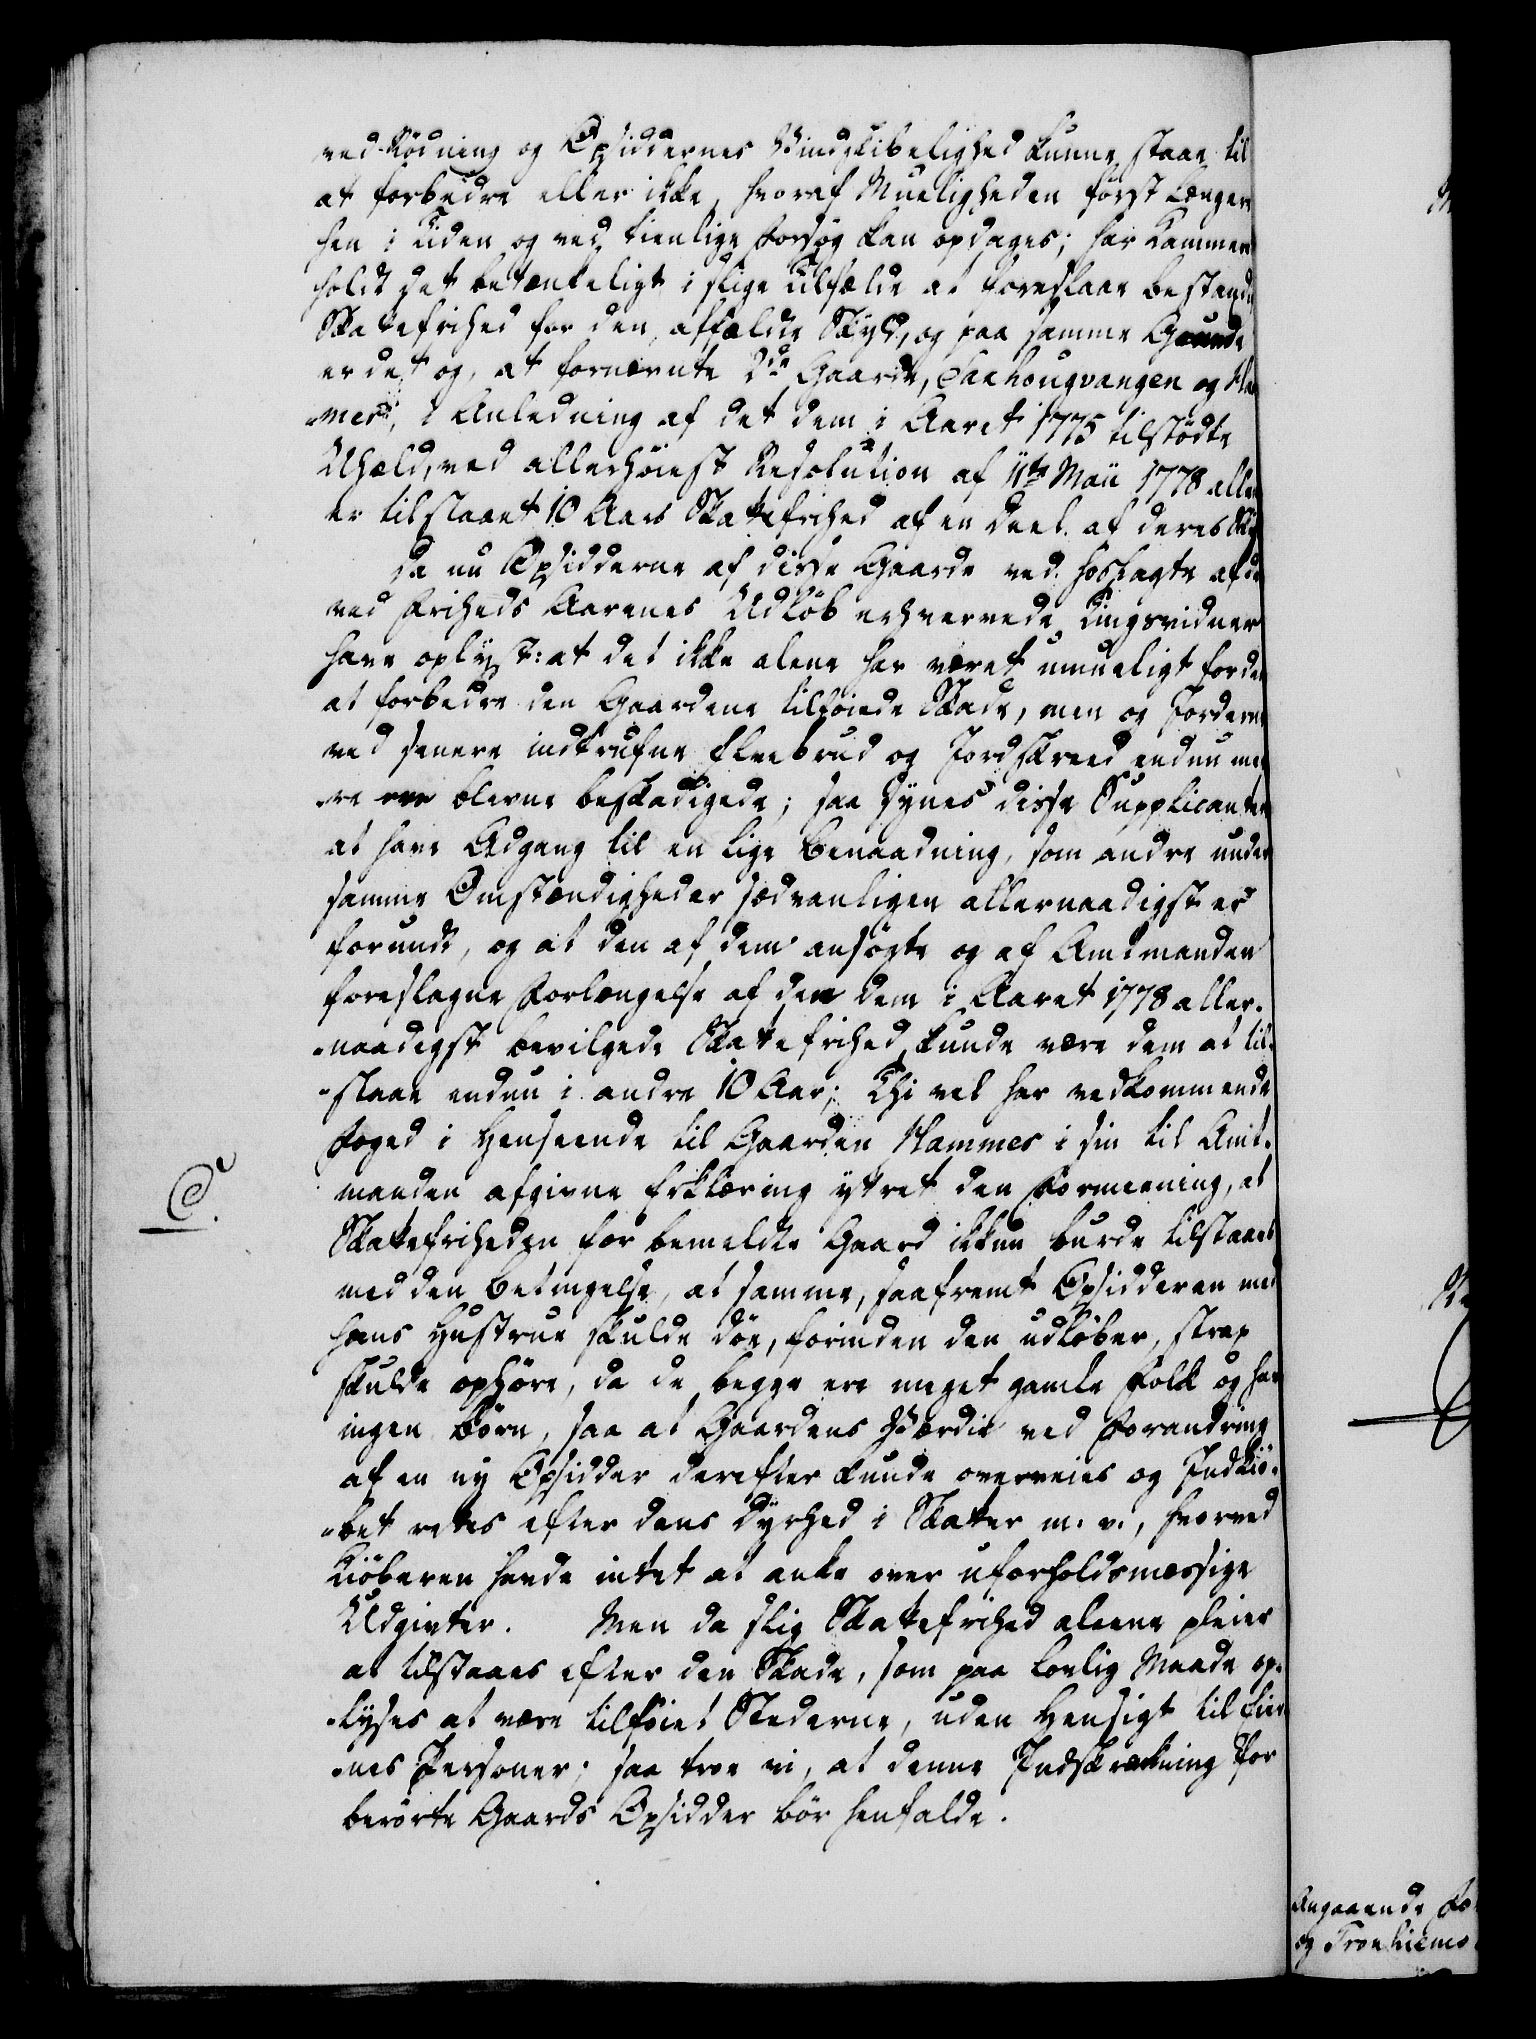 ved Rødning og Opsiddernes Vindskibelighed kunne staae til
at forbedre eller ikke, hvoraf Mueligheden først længere
hen i Tiden og ved tienlige Forsøg kan opdages; har Kammeret
holdt det betænkeligt i slige Tilfælde at foreslaae bestandig
Skattefrihed for den affældte Skyld, og paa samme Grunde
er det og, at fornævnte 2de Gaarde, Aachougvangen og Ham-
-mes, i Anledning af det dem i Aaret 1775 tilstødte
Uhæld, ved allerhøiest Resolution af 11te Maii 1778 alle
er tilstaaet 10 Aars Skattefrihed af en Deel af deres Skyld
Da nu Opsidderne af disse Gaarde ved hoslagte af de
ved Friheds Aarenes Udløb erhvervede Tingsvidner
have oplyst: at det ikke alene har været umueligt for dem
at forbedre den Gaardene tilføiede Skade, men og Jorderne
ved senere indtrufne Elvebrud og Jordskreed endnu me-
-re ere blevne beskadigede; saa synes disse Supplicanter
at have Adgang til en lige Benaadning, som andre under
samme Omstændigheder sædvanligen allernaadigst er
forundt, og at den af dem ansøgte og af Amtmanden
foreslagne Forlængelse af den dem i Aaret 1778 aller-
-naadigst bevilgede Skattefrihed kunde være dem at til-
-staae endnu i andre 10 Aar; Thi vel har vedkommende
Foged i Henseende til Gaarden Hammes i sin til Amt-
manden afgivne Erklæring ytret den Formeening, at
Skattefriheden for bemeldte Gaard ikkun burde tilstaaes
med den Betingelse, at samme, saafremt Opsidderen med
hans Hustrue skulde døe, forinden den udløber, strax
skulde ophøre, da de begge ere meget gamle Folk og har
ingen Børn, saa at Gaardens Værdie ved Forandring
af en ny Opsidder derefter kunde overveies og Indkiø-
-bet rettes efter dens Dyrhed i Skatter m. v., hvorved
Kiøberen havde intet at anke over uforholdsmæssige
Udgivter. Men da slig Skattefrihed aleene pleier
at tilstaaes efter den Skade, som paa lovlig Maade op-
-lyses at være tilføiet Stederne, uden Hensigt til Eier-
-nes Personer; saa troe vi, at denne Indskrænkning for
berørte Gaards Opsidder bør henfalde.
Angaaende Fo
og Tronhiems